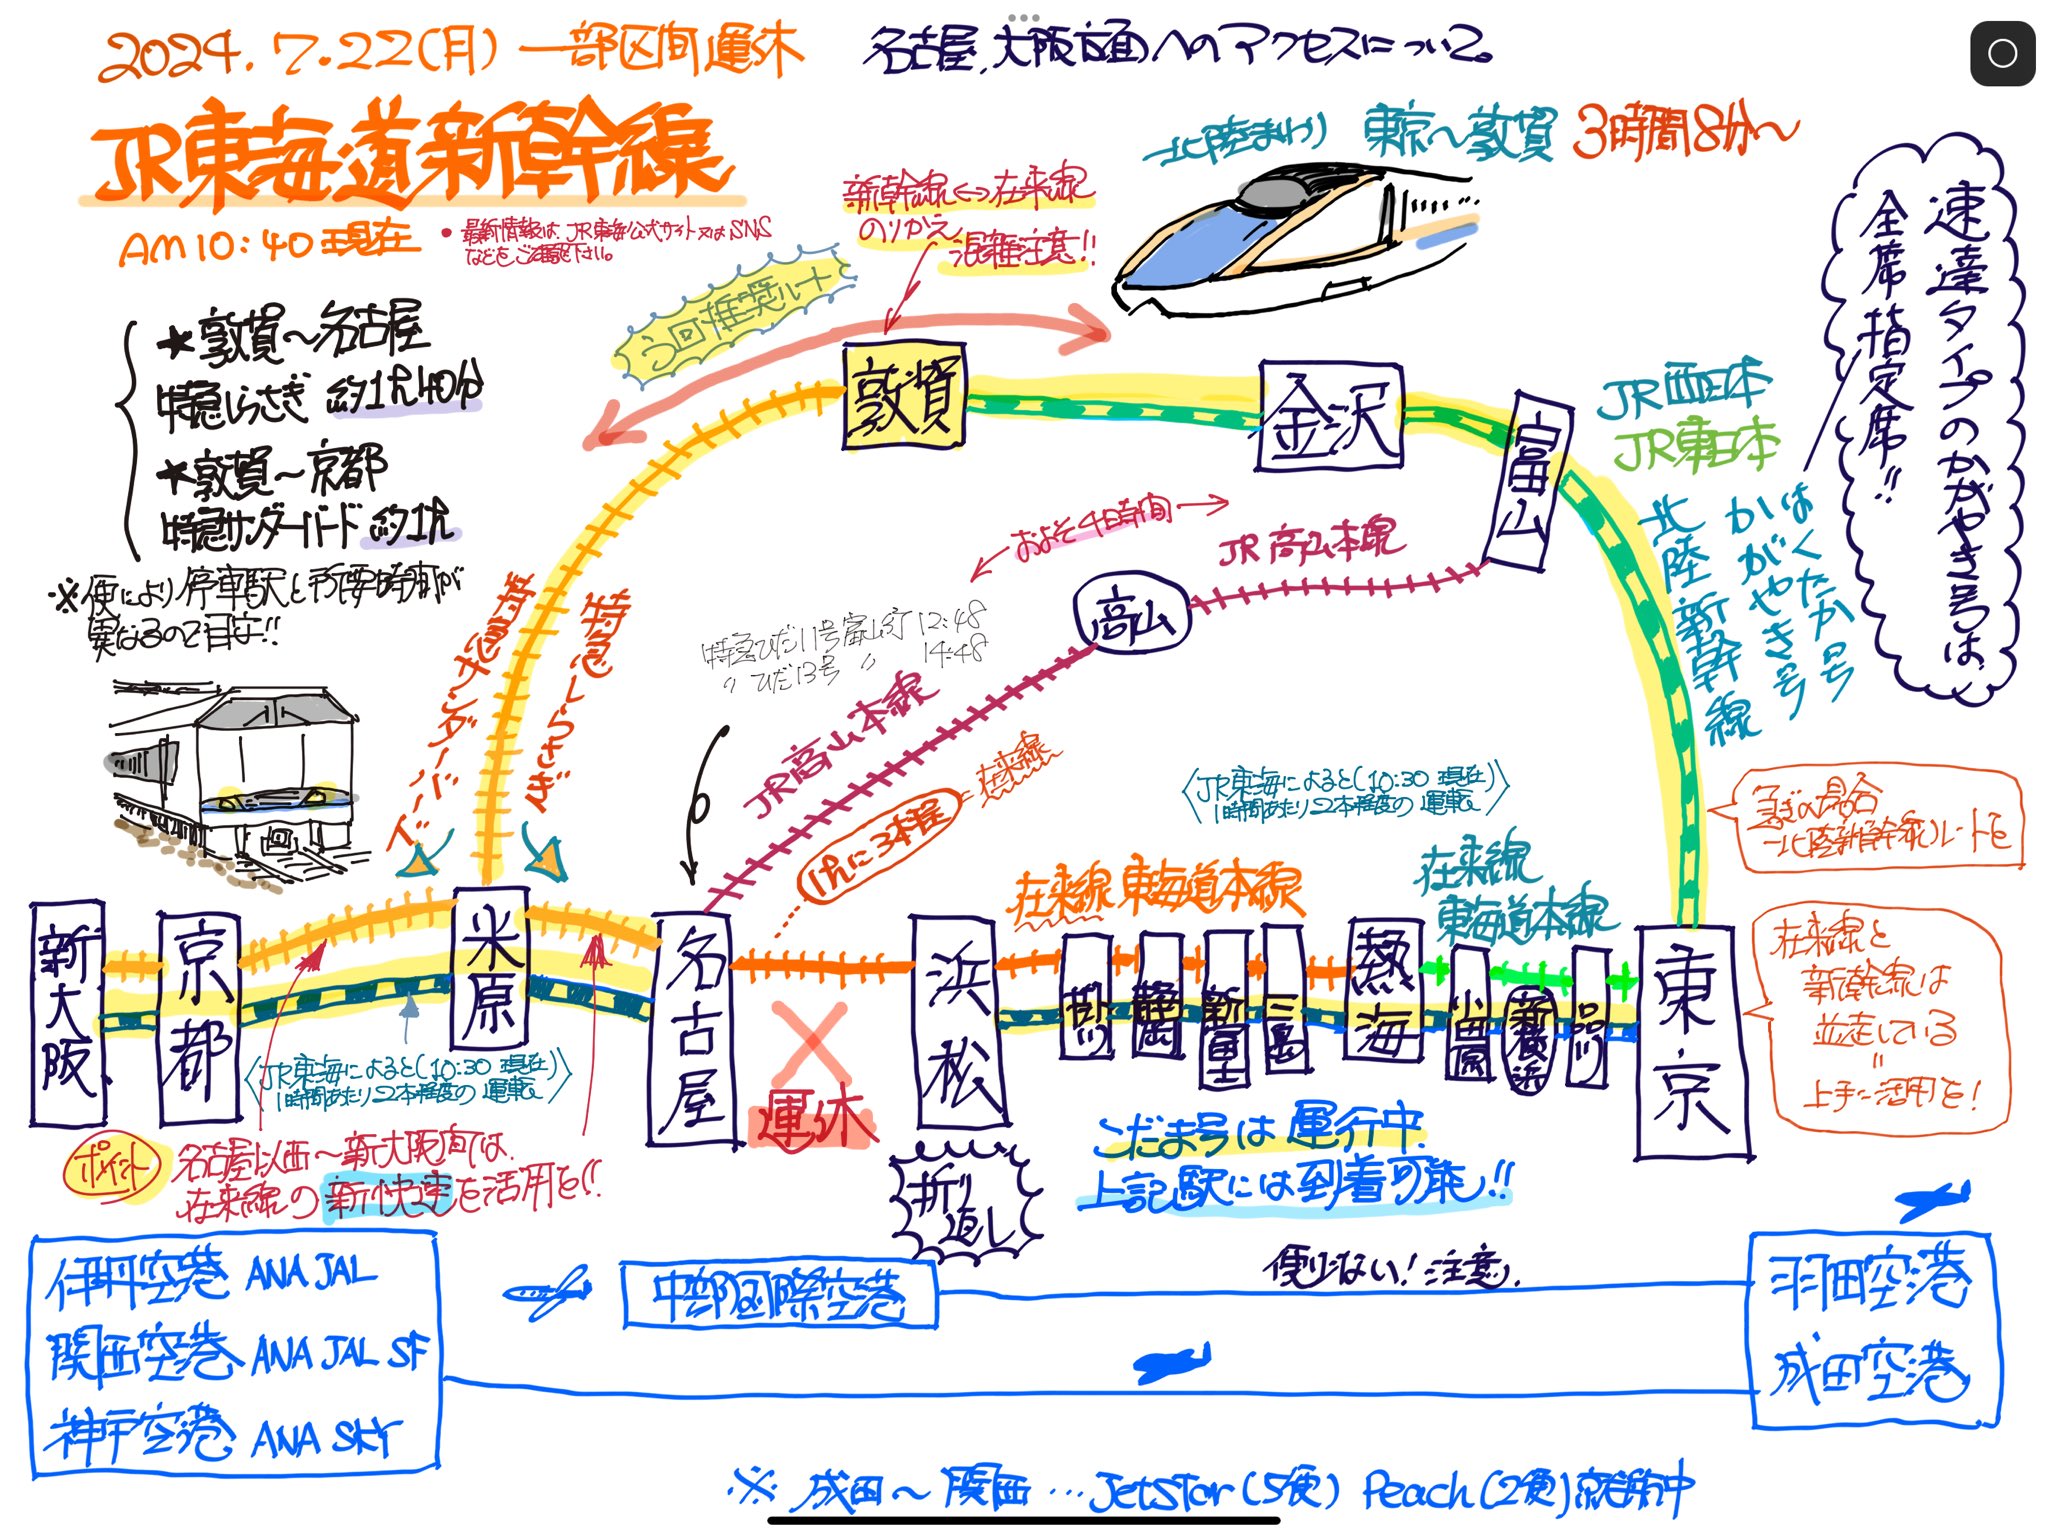 2024.7.22(月) 一部区間運休
名古屋、大阪方面へのアクセスについて。
JR東海道新幹線
AM10:40現在
• 最新情報は JR東海公式サイト又はSNS
などをご確認下さい。
北陸まわり 東京〜敦賀 3時間8分〜
新幹線↔在来線
のりかえ
混雑注意!!
今回推奨ルート
速達タイプのかがやき号は、
全席指定席!!
★敦賀〜名古屋
特急しらさぎ 約1h40分
★敦賀〜京都
特急サンダーバード 約1h
※便により停車駅と所要時間が
異なるので目安!!
敦賀
金沢
富山
JR西日本
JR東日本
北陸新幹線
かがやき号
はくたか号
←およそ4時間→
JR高山本線
高山
特急ひだ11号富山行 12:48
〃 ひだ13号 〃 14:48
JR高山本線
特急サンダーバード
特急しらさぎ
1hに3本程
=在来線
〈JR東海によると(10:30現在)
1時間あたり2本程度の運転〉
急ぎの場合
北陸新幹線ルートを
在来線 東海道本線
在来線
東海道本線
新大阪
京都
米原
名古屋
浜松
掛川
静岡
新富士
三島
熱海
小田原
新横浜
品川
東京
在来線と
新幹線は
並走している
=
上手に活用を!
〈JR東海によると(10:30現在)
1時間あたり2本程度の運転〉
運休
折り
返し
こだま号は運行中
上記駅には到着可能!!
ポイント
名古屋以西〜新大阪間では、
在来線の新快速を活用を!!
伊丹空港 ANA JAL
関西空港 ANA JAL SF
神戸空港 ANA SKY
中部国際空港
便少ない!注意。
羽田空港
成田空港
※ 成田〜関西…JetStar(5便) Peach(2便)就航中